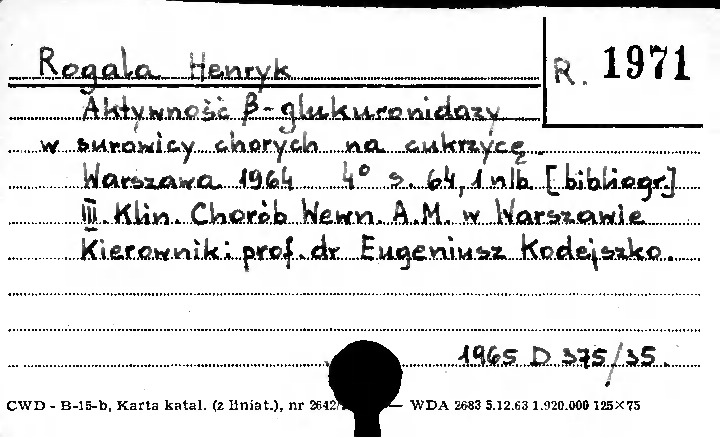 Rogala Henryk
R. 1971
Aktywność β-glukuronidazy
w surowicy chorych na cukrzycę.
Warszawa 1964 4° s. 64, 1 nlb. [bibliogr.]
III. Klin. Chorób Wewn. A.M. w Warszawie
Kierownik: prof. dr Eugeniusz Kodejszko.
1965 D 375/35.
CWD - B-15-b, Karta katal. (z liniat.), nr 2642/ — WDA 2683 5.12.63 1.920.000 125×75